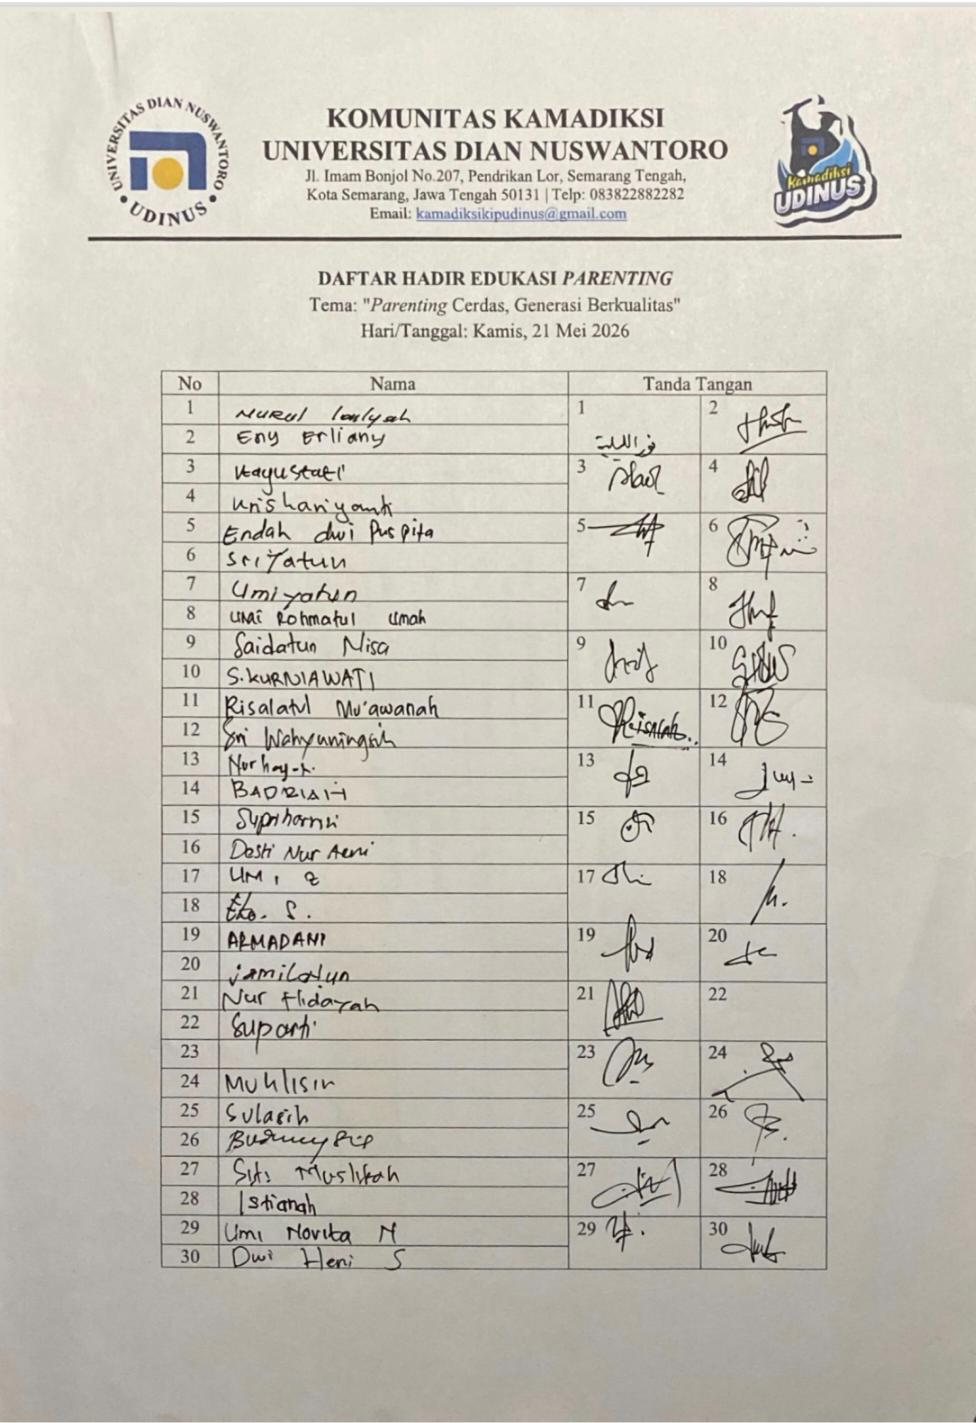 UNIVERSITAS DIAN NUSWANTORO
• UDINUS •
KOMUNITAS KAMADIKSI
UNIVERSITAS DIAN NUSWANTORO
Jl. Imam Bonjol No.207, Pendrikan Lor, Semarang Tengah,
Kota Semarang, Jawa Tengah 50131 | Telp: 083822882282
Email: kamadiksikipudinus@gmail.com
Kamadiksi
UDINUS
DAFTAR HADIR EDUKASI PARENTING
Tema: "Parenting Cerdas, Generasi Berkualitas"
Hari/Tanggal: Kamis, 21 Mei 2026
No Nama Tanda Tangan
1 NURUL 1 2
2 Eny Erliany
3 3 4
4
5 Endah dwi Puspita 5 6
6 Sri Yatun
7 Umiyatun 7 8
8 UMI Rohmatul Umah
9 Saidatun Nisa 9 10
10 S.KURNIAWATI
11 Risalatul Mu'awanah 11 Risalah.. 12
12 Sri Wahyuningsih
13 13 14
14 BADRIAH
15 15 16
16 Desti Nur Aeni
17 UMI 17 18
18 Eko. S.
19 ARMADANI 19 20
20 jamilatun
21 Nur Hidayah 21 22
22 Suparti
23 23 24
24 Muhlisin
25 Sulasih 25 26
26
27 Siti Muslikah 27 28
28 Istianah
29 Umi Novita N 29 30
30 Dwi Heni S